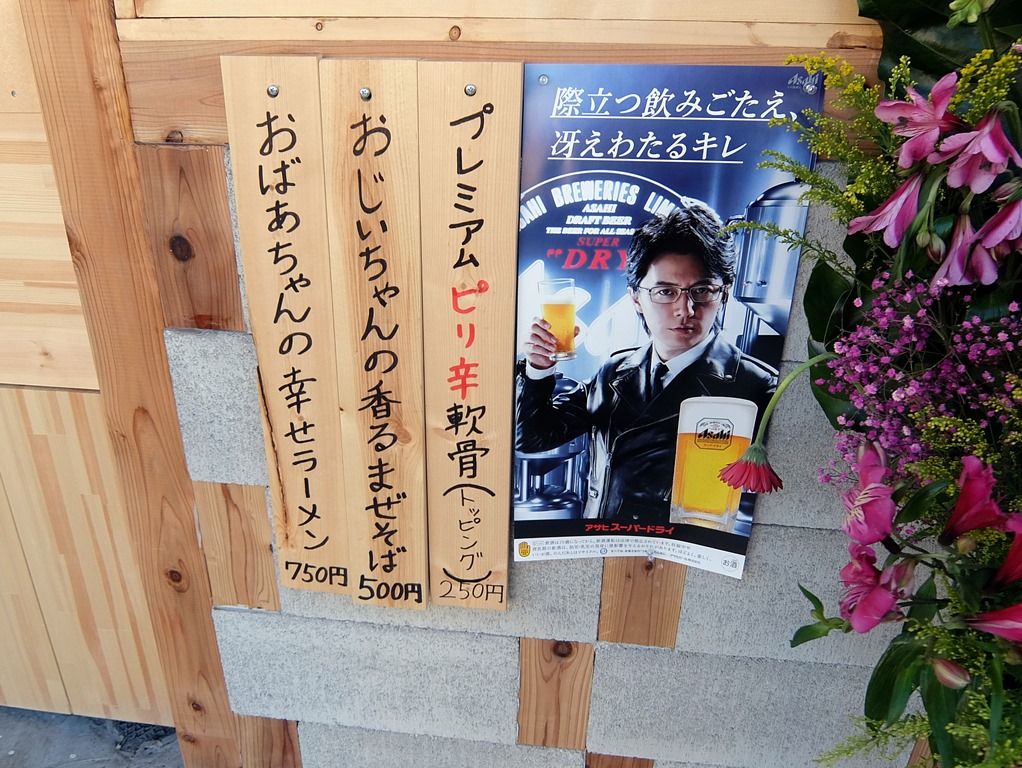 プレミアムピリ辛軟骨(トッピング)
250円
おじいちゃんの香るまぜそば
500円
おばあちゃんの幸せラーメン
750円
Asahi
際立つ飲みごたえ、
冴えわたるキレ
BREWERIES
ASAHI
DRAFT BEER
THE BEER FOR ALL
SUPER
"DRY
Asahi
アサヒスーパードライ
お酒